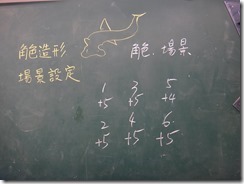 角色造形
場景設定
角色.場景
1 3 5
+5 +5 +4
2 4 6
+5 +5 +5